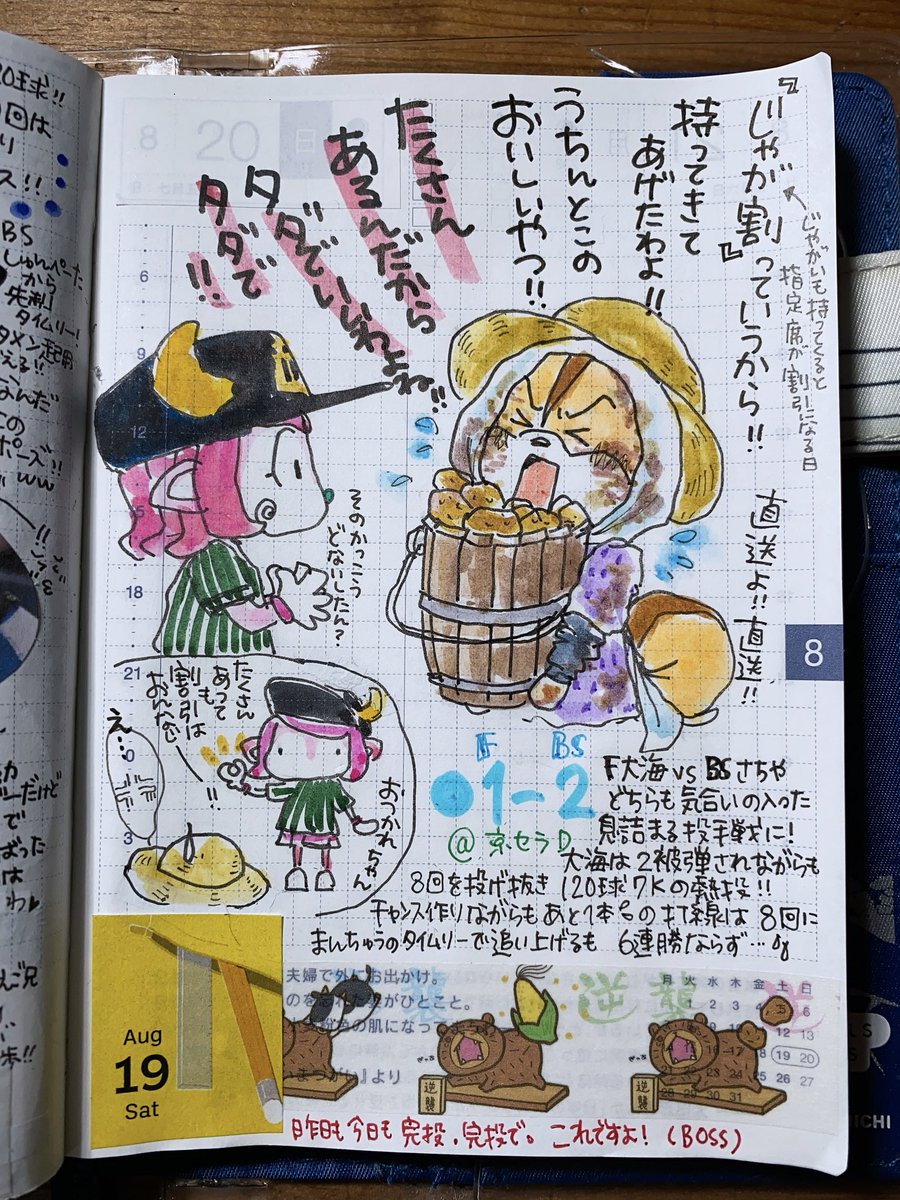 『じゃが割』っていうから!!
持ってきて
あげたわよ!!
うちんとこの
おいしいやつ!!
たくさん
あるんだから
タダでいいわよね!!
タダで!!
じゃがいも持ってくると
指定席が割引になる日
直送よ!!直送!!
そのかっこう
どないしたん?
たくさん
あっても
割引は
おんなじ
!!
おつかれちゃん
え…
F BS
●1-2
@京セラD
F大海 vs BSさちや
どちらも気合いの入った
息詰まる投手戦に!
大海は2被弾されながらも
8回を投げ抜き 120球7Kの熱投!!
チャンス作りながらもあと1本。の打線は 8回に
まんちゅうのタイムリーで追い上げるも 6連勝ならず…
Aug
19
Sat
夫婦で外にお出かけ。
逆襲
逆襲
逆襲
月 火 水 木 金 土 日
昨日も今日も完投、完投で。これですよ!(BOSS)
8
20
日
6
9
12
15
18
21
0
3
8
20球!!
回は
ス!!
BS
しゅんぺーた
から
先制
タイムリー!
このポーズ!!
ww